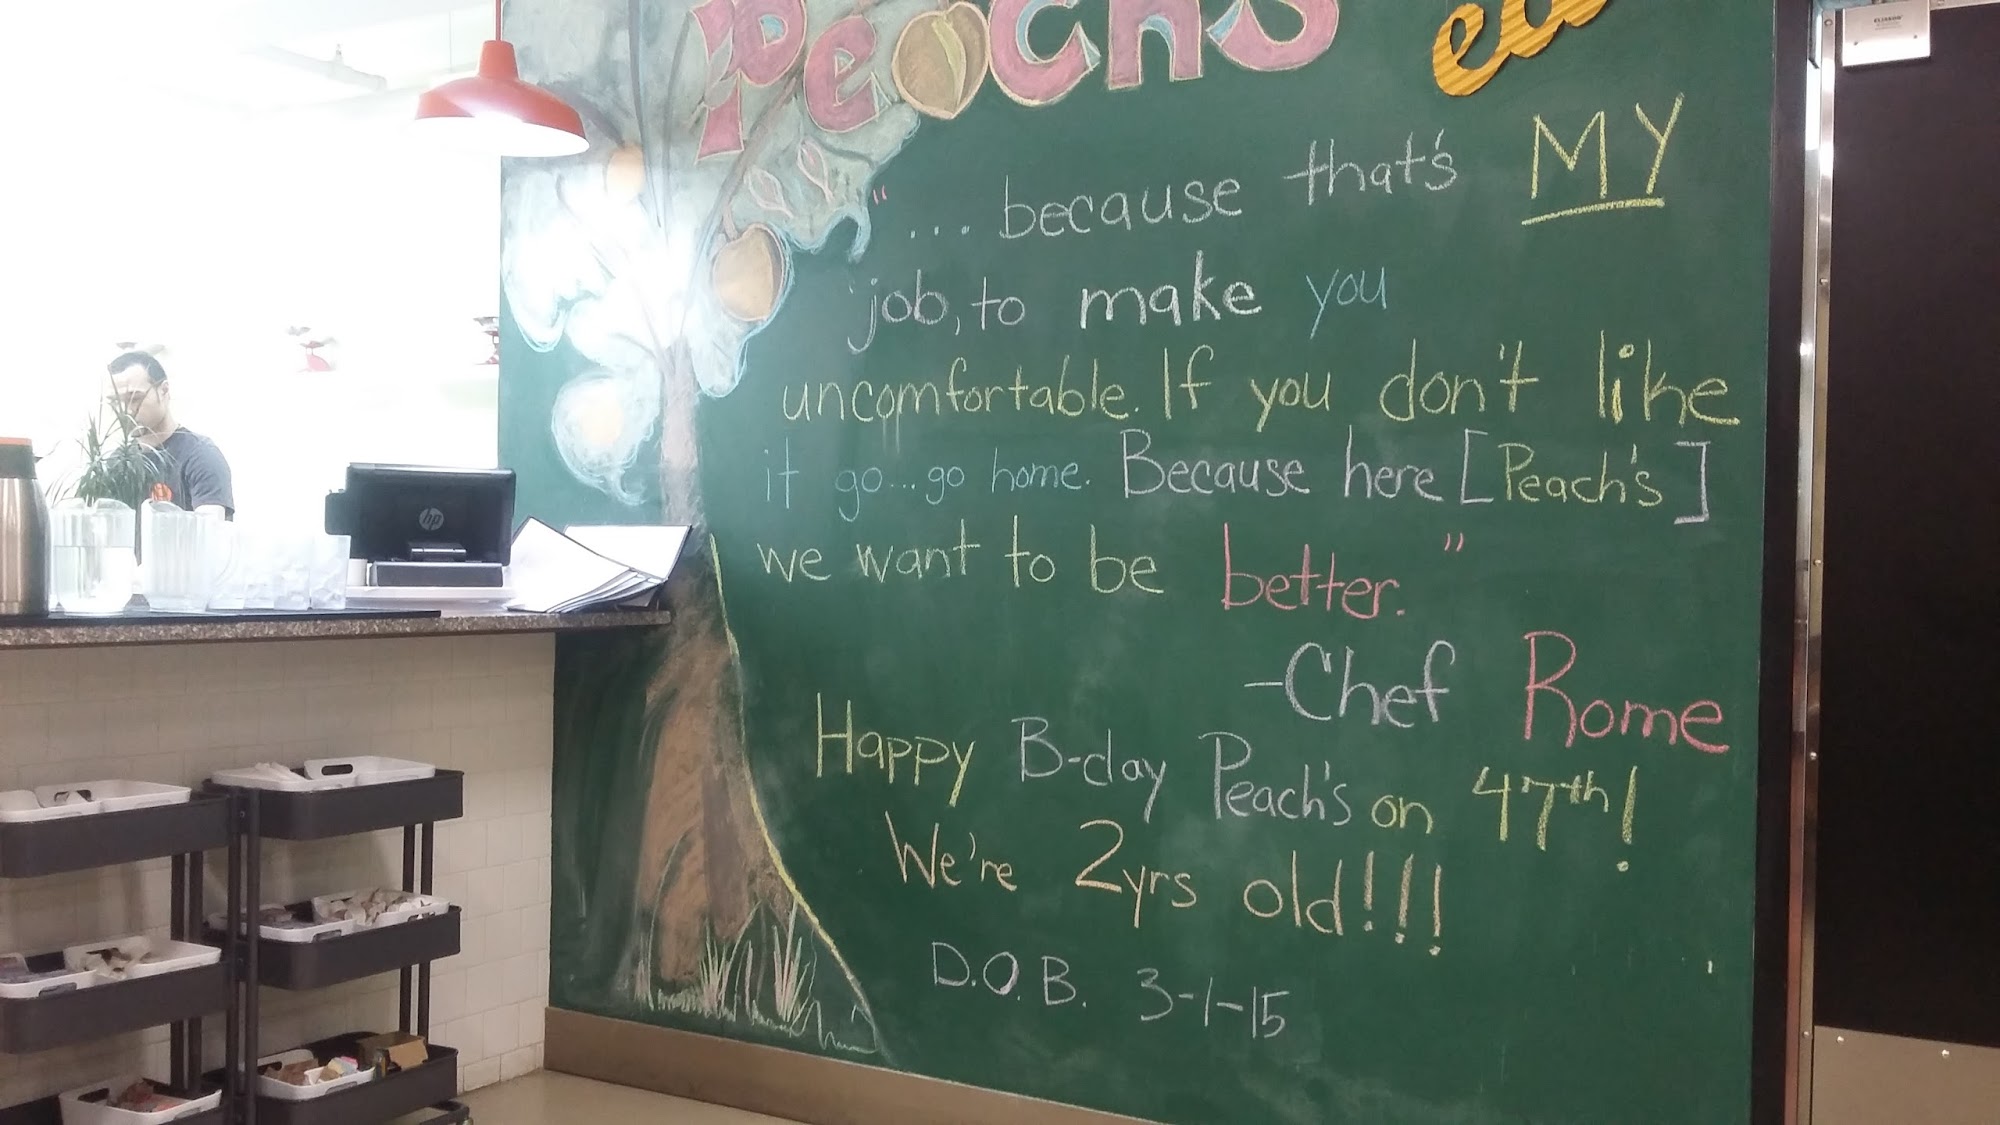 Peach's
"... because that's MY
job, to make you
uncomfortable. If you don't like
it go...go home. Because here [Peach's]
we want to be better."
-Chef Rome
Happy B-day Peach's on 47th!
We're 2yrs old!!!
D.O.B. 3-1-15
hp